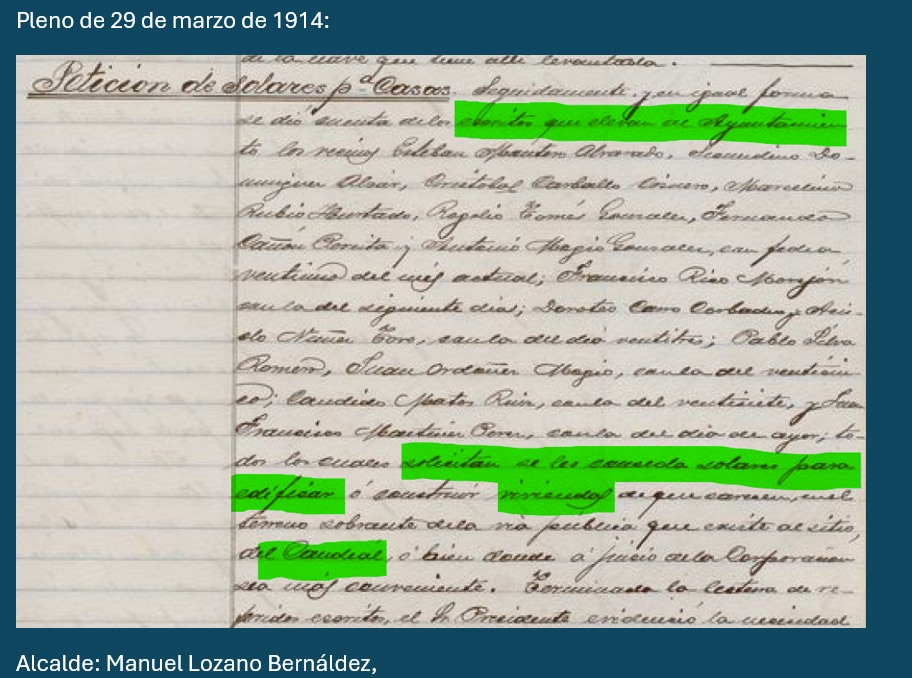 Pleno de 29 de marzo de 1914:
de la llave que tiene alli levantada.
Peticion de Solares pª Casas. Seguidamente y en igual forma
se dió cuenta de los escritos que elevan al Ayuntamien
to los vecinos Esteban Alvarado, Secundino Do-
minguez Cristobal Carballo Marcelino
Rubio Hurtado, Rogelio Tomés Gonzalez, Fernando
y Antonio Megio Gonzalez, con fecha
veintiuno del mes actual; Francisco Rico Morejón
con la del siguiente dia; Doroteo Caro y
lo Nuñez Toro, con la del dia veintitres; Pablo Silva
Romero, Juan Ordoñez Megio, con la del veinticin
co; Candido Matos Ruiz, con la del veintisiete, y Juan
Francisco Martinez Perez, con la del dia de ayer; to-
dos los cuales solicitan se les conceda solares para
edificar ó construir viviendas de que carecen, en el
terreno sobrante de la via pública que existe al sitio,
del Caudeál, ó bien donde á juicio de la Corporacion
sea más conveniente. Terminada la lectura de re-
feridos escritos, el Sr. Presidente evidenció la necesidad
Alcalde: Manuel Lozano Bernáldez,